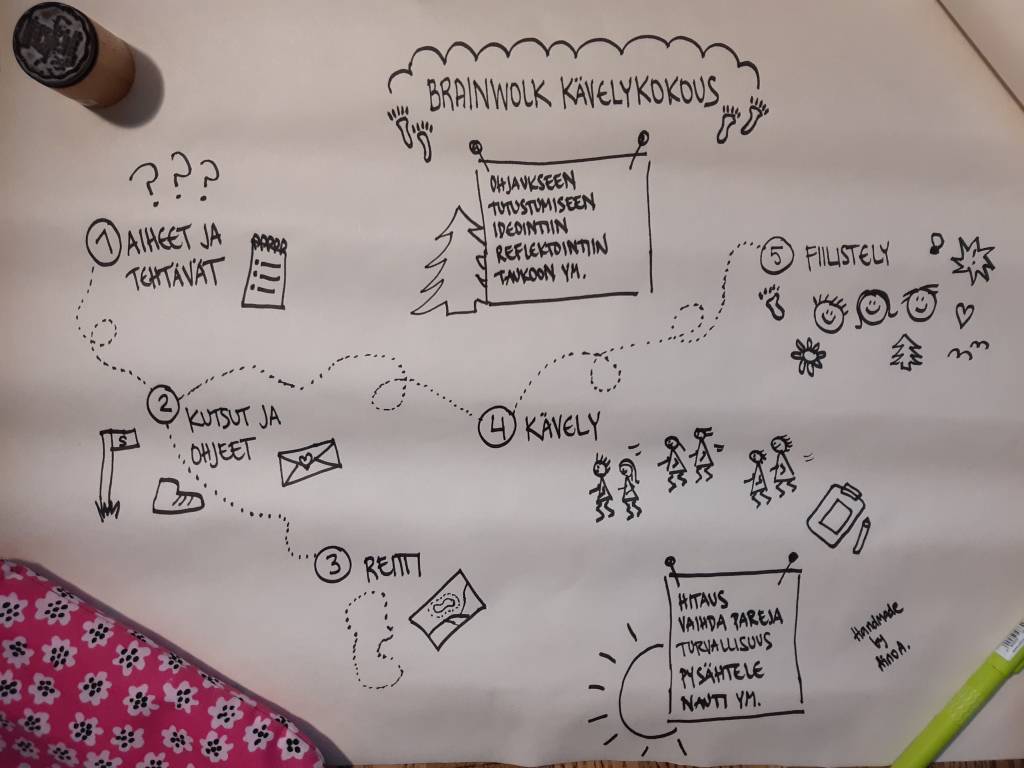 BRAINWOLK KÄVELYKOKOUS
OHJAUKSEEN
TUTUSTUMISEEN
IDEOINTIIN
REFLEKTOINTIIN
TAUKOON YM.
? ? ?
1 AIHEET JA
TEHTÄVÄT
2 KUTSUT JA
OHJEET
S
3 REITTI
4 KÄVELY
5 FIILISTELY
!
HITAUS
VAIHDA PAREJA
TURVALLISUUS
PYSÄHTELE
NAUTI YM.
Handmade
by